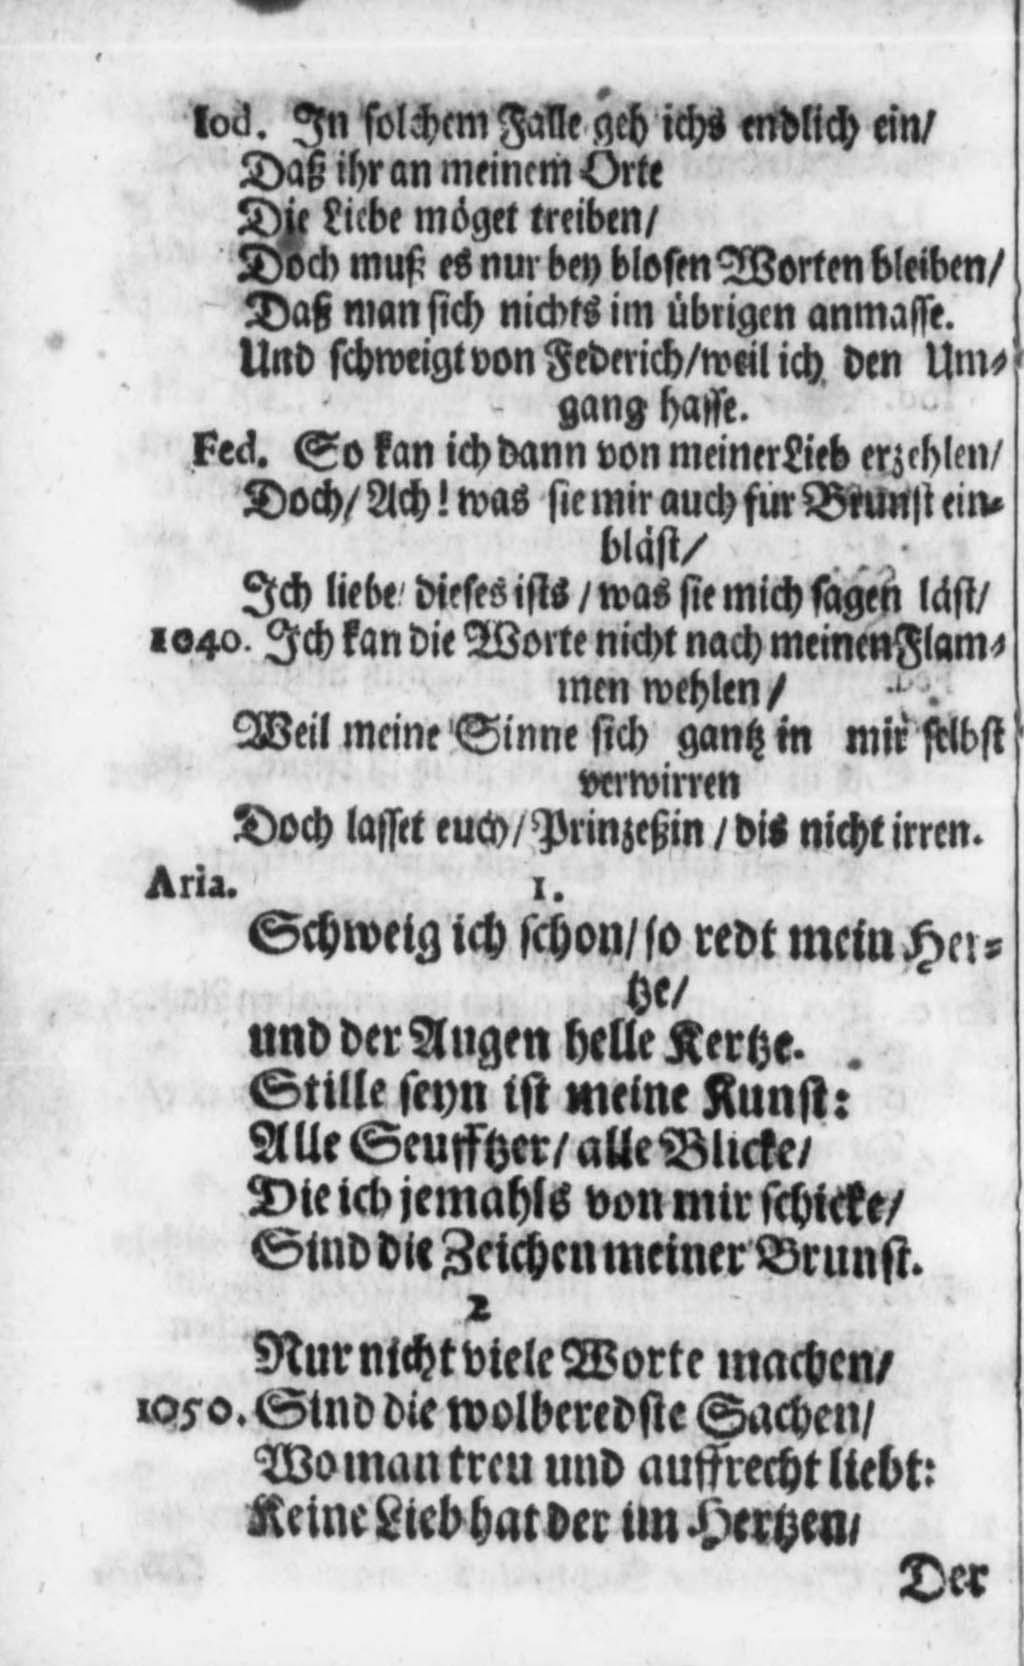 Iod. In solchem Falle geh ichs endlich ein/
Daß ihr an meinem Orte
Die Liebe möget treiben/
Doch muß es nur bey blosen Worten bleiben/
Daß man sich nichts im übrigen anmasse.
Und schweigt von Federich/weil ich den Um-
gang hasse.
Fed. So kan ich dann von meiner Lieb erzehlen/
Doch/ Ach! was sie mir auch für Brunst ein-
bläst/
Ich liebe/ dieses ists / was sie mich sagen läst/
1040. Ich kan die Worte nicht nach meinen Flam-
men wehlen/
Weil meine Sinne sich gantz in mir selbst
verwirren
Doch lasset euch/ Prinzeßin / dis nicht irren.
Aria. 1.
Schweig ich schon/ so redt mein Her-
tze/
und der Augen helle Kertze.
Stille seyn ist meine Kunst:
Alle Seufftzer/ alle Blicke/
Die ich jemahls von mir schicke/
Sind die Zeichen meiner Brunst.
2
Nur nicht viele Worte machen/
1050. Sind die wolberedste Sachen/
Wo man treu und auffrecht liebt:
Keine Lieb hat der im Hertzen/
Der